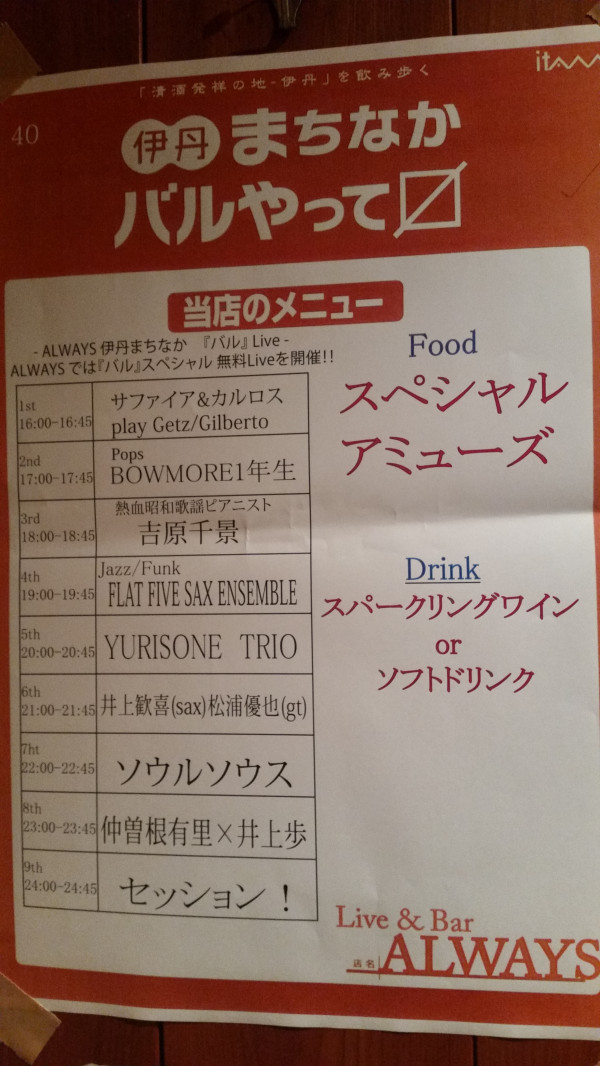 「清酒発祥の地-伊丹」を飲み歩く
40
伊丹 まちなか
バルやって〼
当店のメニュー
- ALWAYS 伊丹まちなか 『バル』 Live -
ALWAYS では『バル』スペシャル 無料Liveを開催!!
1st
16:00-16:45
サファイア&カルロス
play Getz/Gilberto
2nd
17:00-17:45
Pops
BOWMORE1年生
3rd
18:00-18:45
熱血昭和歌謡ピアニスト
吉原千景
4th
19:00-19:45
Jazz/Funk
FLAT FIVE SAX ENSEMBLE
5th
20:00-20:45
YURISONE TRIO
6th
21:00-21:45
井上歓喜(sax)松浦優也(gt)
7ht
22:00-22:45
ソウルソウス
8th
23:00-23:45
仲曽根有里×井上歩
9th
24:00-24:45
セッション！
Food
スペシャル
アミューズ
Drink
スパークリングワイン
or
ソフトドリンク
Live & Bar
店名 ALWAYS